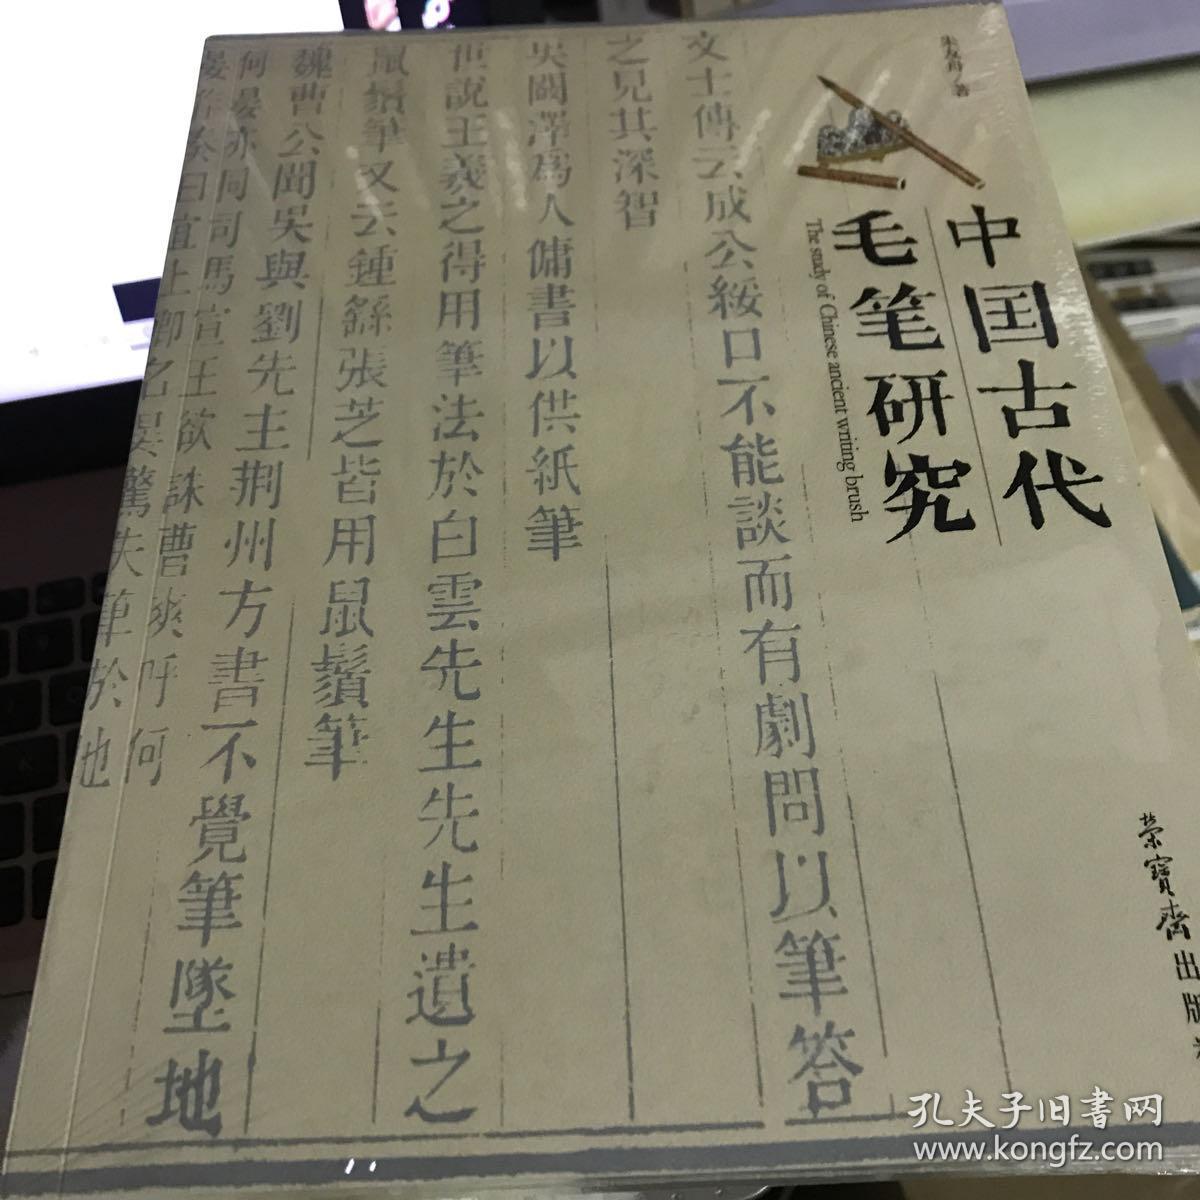 朱友舟/著
中国古代
毛笔研究
The study of Chinese ancient writing brush
文士傳云成公綏口不能談而有劇問以筆答
之見其深智
吳闞澤爲人傭書以供紙筆
世說王羲之得用筆法於白雲先生先生遺之
鼠鬚筆又云鍾繇張芝皆用鼠鬚筆
魏曹公聞吳與劉先主荆州方書不覺筆墜地
何晏亦同司馬宣王欲誅曹爽呼何
晏作奏曰宜上卿名晏驚失筆於地
榮寶齋出版社
孔夫子旧书网
www.kongfz.com